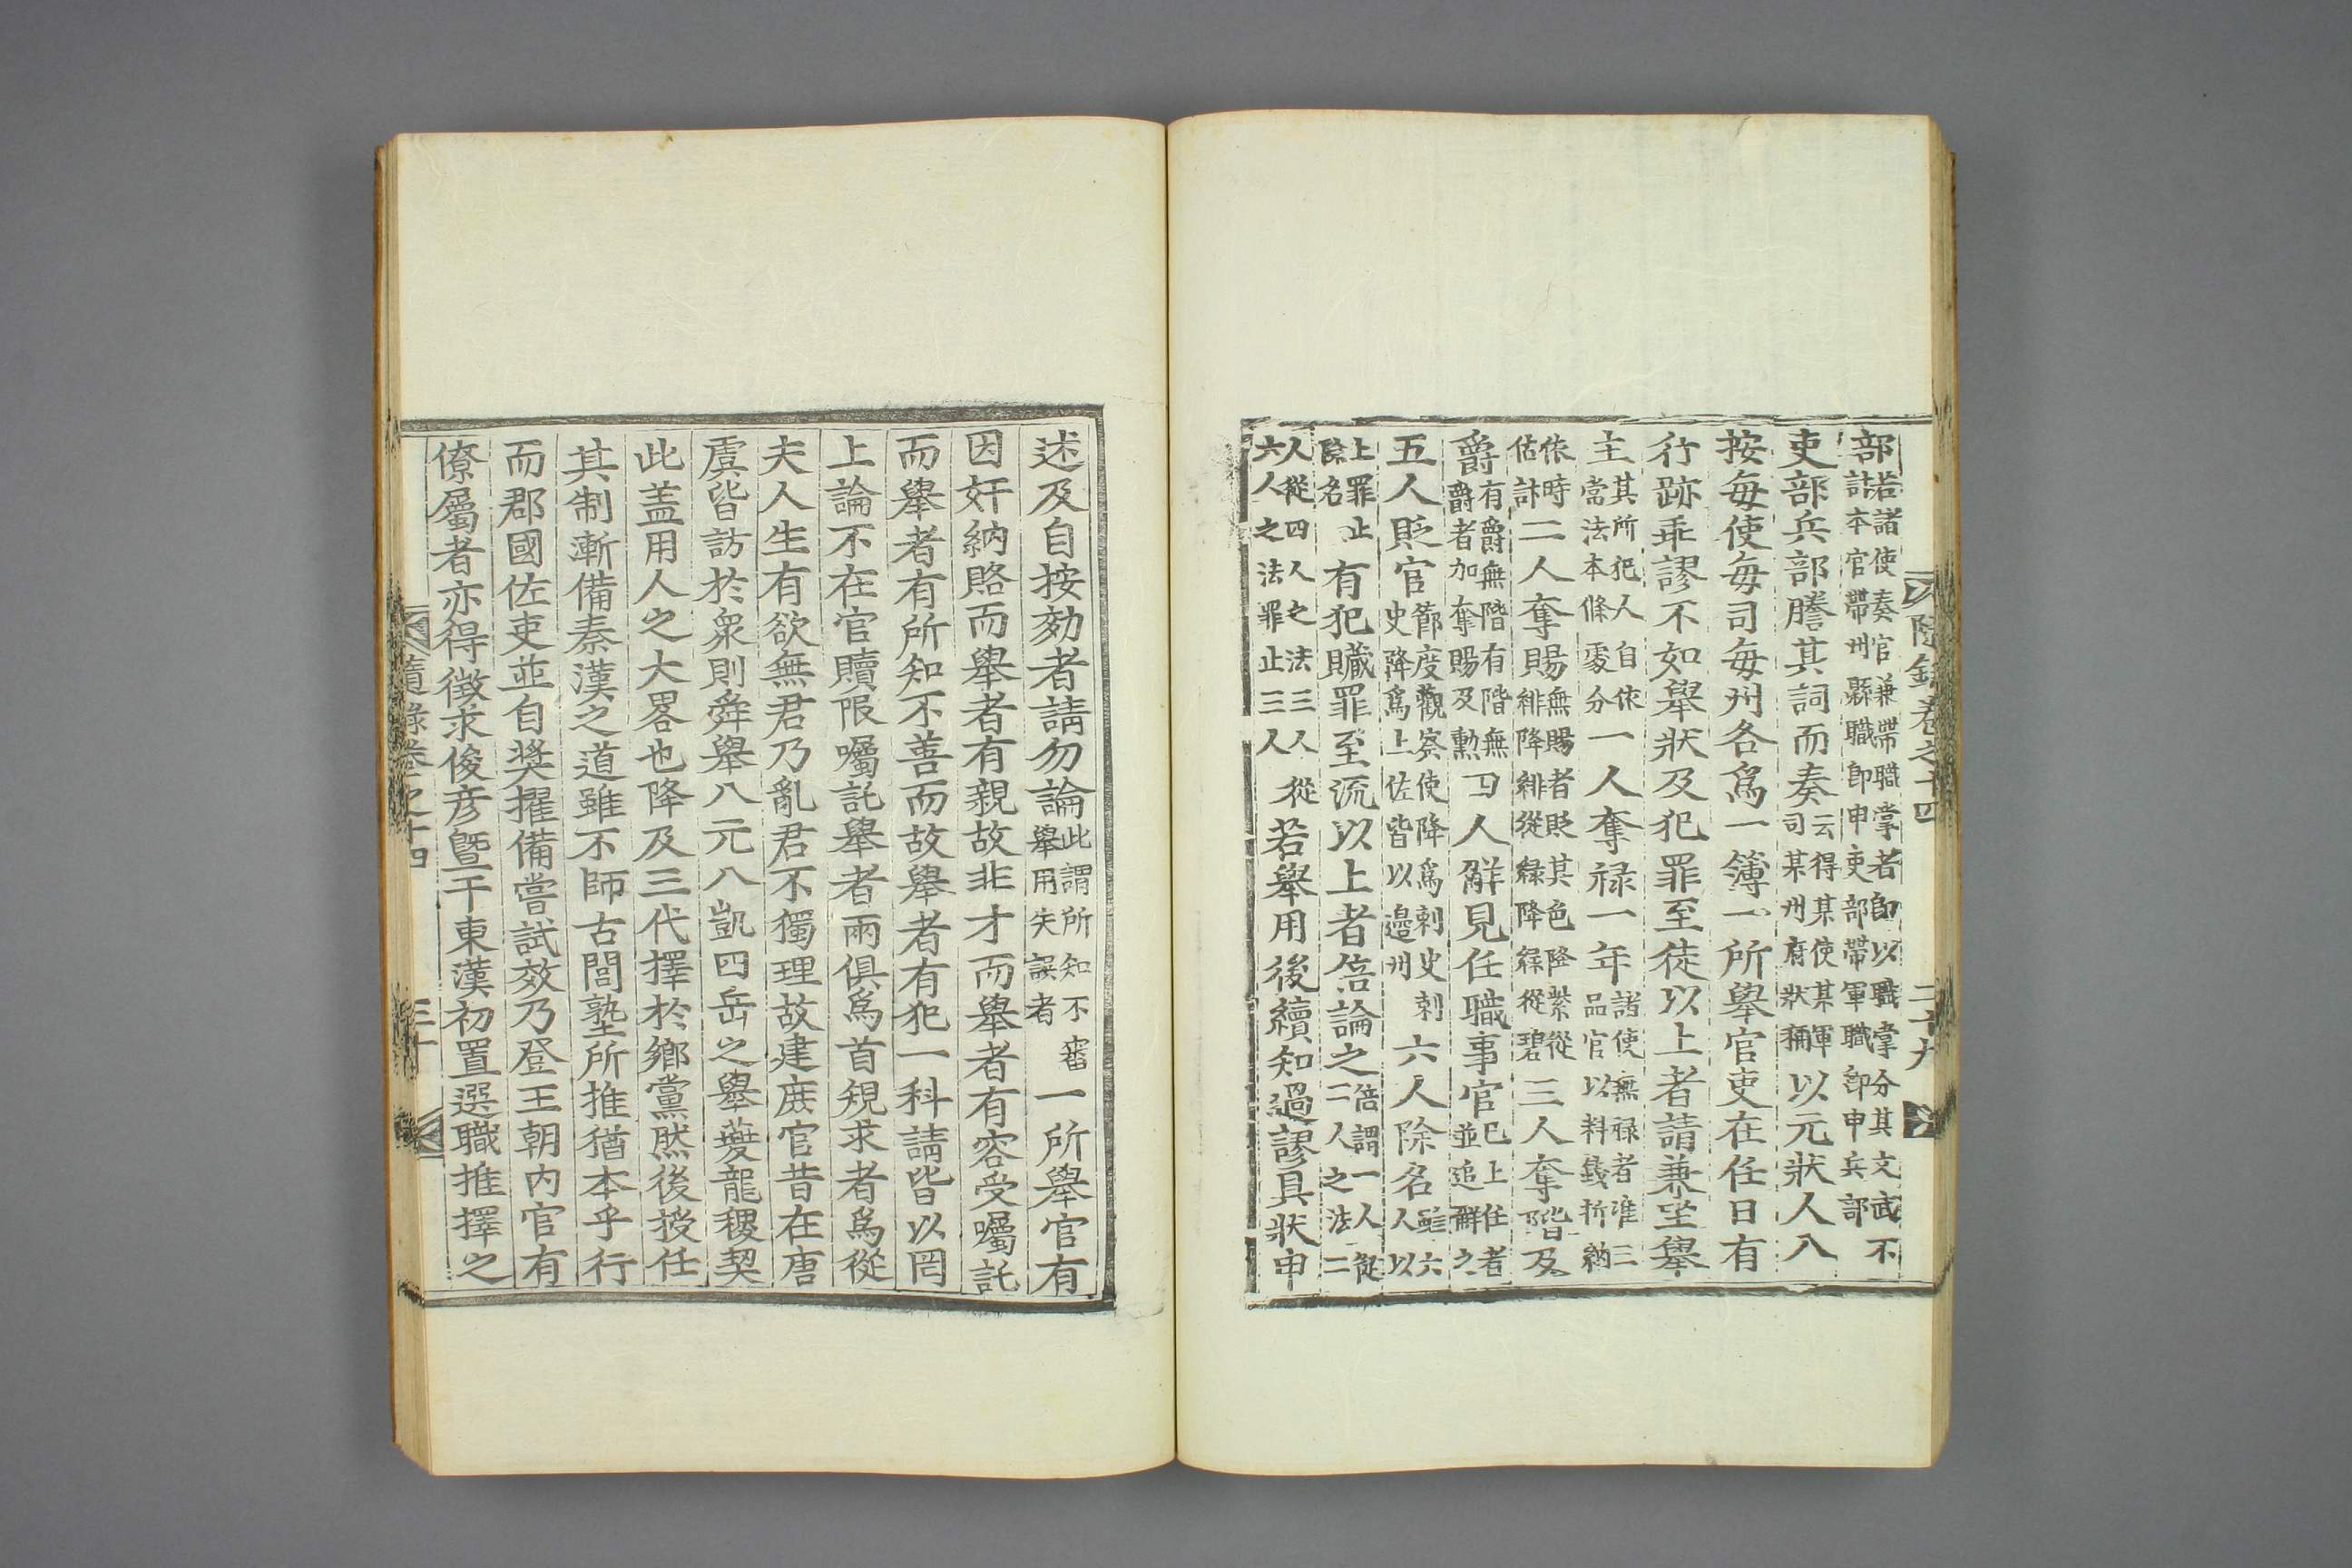 隨錄卷之十四 二十九
部若諸使奏官兼帶職掌者卽以職掌分其文武不計本官帶州縣職卽申吏部帶軍職卽申兵部
吏部兵部謄其詞而奏云得某使某軍司某州府狀稱以元狀人八
按每使每司每州各爲一簿一所舉官吏在任日有
行跡乖謬不如舉狀及犯罪至徒以上者請兼坐舉
主其所犯人自依常法本條處分一人奪祿一年諸使無祿者准三品官以料錢折納
依時估計二人奪賜無賜者貶其色降紫從緋降緋從綠降綠從碧三人奪階及
爵有爵無階有階無爵者加奪賜及勳四人解見任職事官已上任者並追解之
五人貶官節度觀察使降爲刺史刺史降爲上佐皆以邊州六人除名雖六人以
上罪止除名有犯贓罪至流以上者倍論之倍謂一人從二人之法二
人從四人之法三人從六人之法罪止三人若舉用後續知過謬具狀申
述及自按劾者請勿論此謂所知不審舉用失誤者一所舉官有
因奸納賂而舉者有親故非才而舉者有容受囑託
而舉者有所知不善而故舉者有犯一科請皆以罔
上論不在官贖限囑託舉者兩俱爲首規求者爲從
夫人生有欲無君乃亂君不獨理故建庶官昔在唐
虞皆訪於衆則舜舉八元八凱四岳之舉夔龍稷契
此盖用人之大畧也降及三代擇於鄉黨然後授任
其制漸備秦漢之道雖不師古閭塾所推猶本乎行
而郡國佐吏並自奬擢備嘗試效乃登王朝內官有
僚屬者亦得徵求俊彦曁于東漢初置選職推擇之
隨錄卷之十四 三十